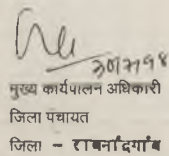 मुख्य कार्यपालन अधिकारी
जिला पंचायत
जिला - राजनांदगांव